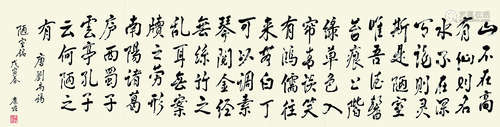 山不在高
有仙则名
水不在深
则灵
斯是陋室
惟吾德馨
苔痕上階
绿草色入
帘青谈笑
有鸿儒往
来白丁
可
琴阅金经
无丝竹之
乱耳无案
牍之劳形
南阳诸葛
庐西蜀子
雲亭孔子
云何陋之
有
唐劉禹锡
陋室铭